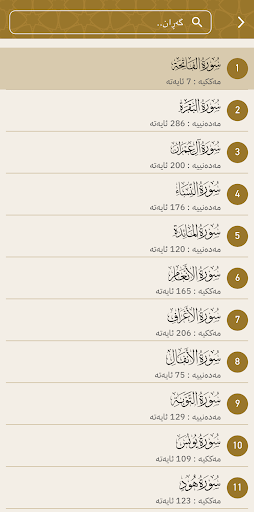 گەڕان..
1
سُورَةُ الفَاتِحَةِ
مەککیە : 7 ئایەتە
2
سُورَةُ البَقَرَةِ
مەدەنییە : 286 ئایەتە
3
سُورَةُ آلِ عِمْرَانَ
مەدەنییە : 200 ئایەتە
4
سُورَةُ النِّسَاءِ
مەدەنییە : 176 ئایەتە
5
سُورَةُ المَائِدَةِ
مەدەنییە : 120 ئایەتە
6
سُورَةُ الأَنْعَامِ
مەککیە : 165 ئایەتە
7
سُورَةُ الأَعْرَافِ
مەککیە : 206 ئایەتە
8
سُورَةُ الأَنفَالِ
مەدەنییە : 75 ئایەتە
9
سُورَةُ التَّوْبَةِ
مەدەنییە : 129 ئایەتە
10
سُورَةُ يُونُسَ
مەککیە : 109 ئایەتە
11
سُورَةُ هُودٍ
مەککیە : 123 ئایەتە